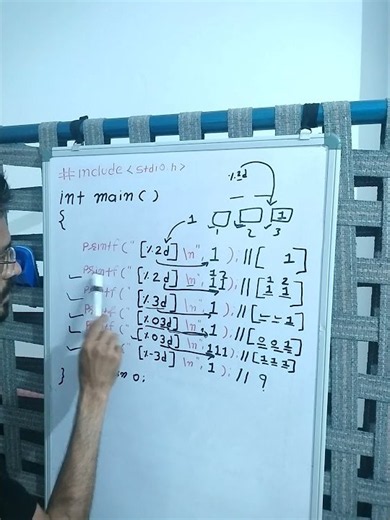 #include <stdio.h>
%3d
int main()
1
1
{
1 2 3
printf("[%2d]\n", 1); //[ 1]
printf("[%2d]\n", 12); //[1 2]
printf(" 11 [1 1]
printf("[%3d]\n", 1); //[_ _ 1]
printf("[%03d]\n", 1); //[0 0 1]
[%03d]\n", 111); //[1 1 1]
[%-3d]\n", 1); // ?
} n 0;